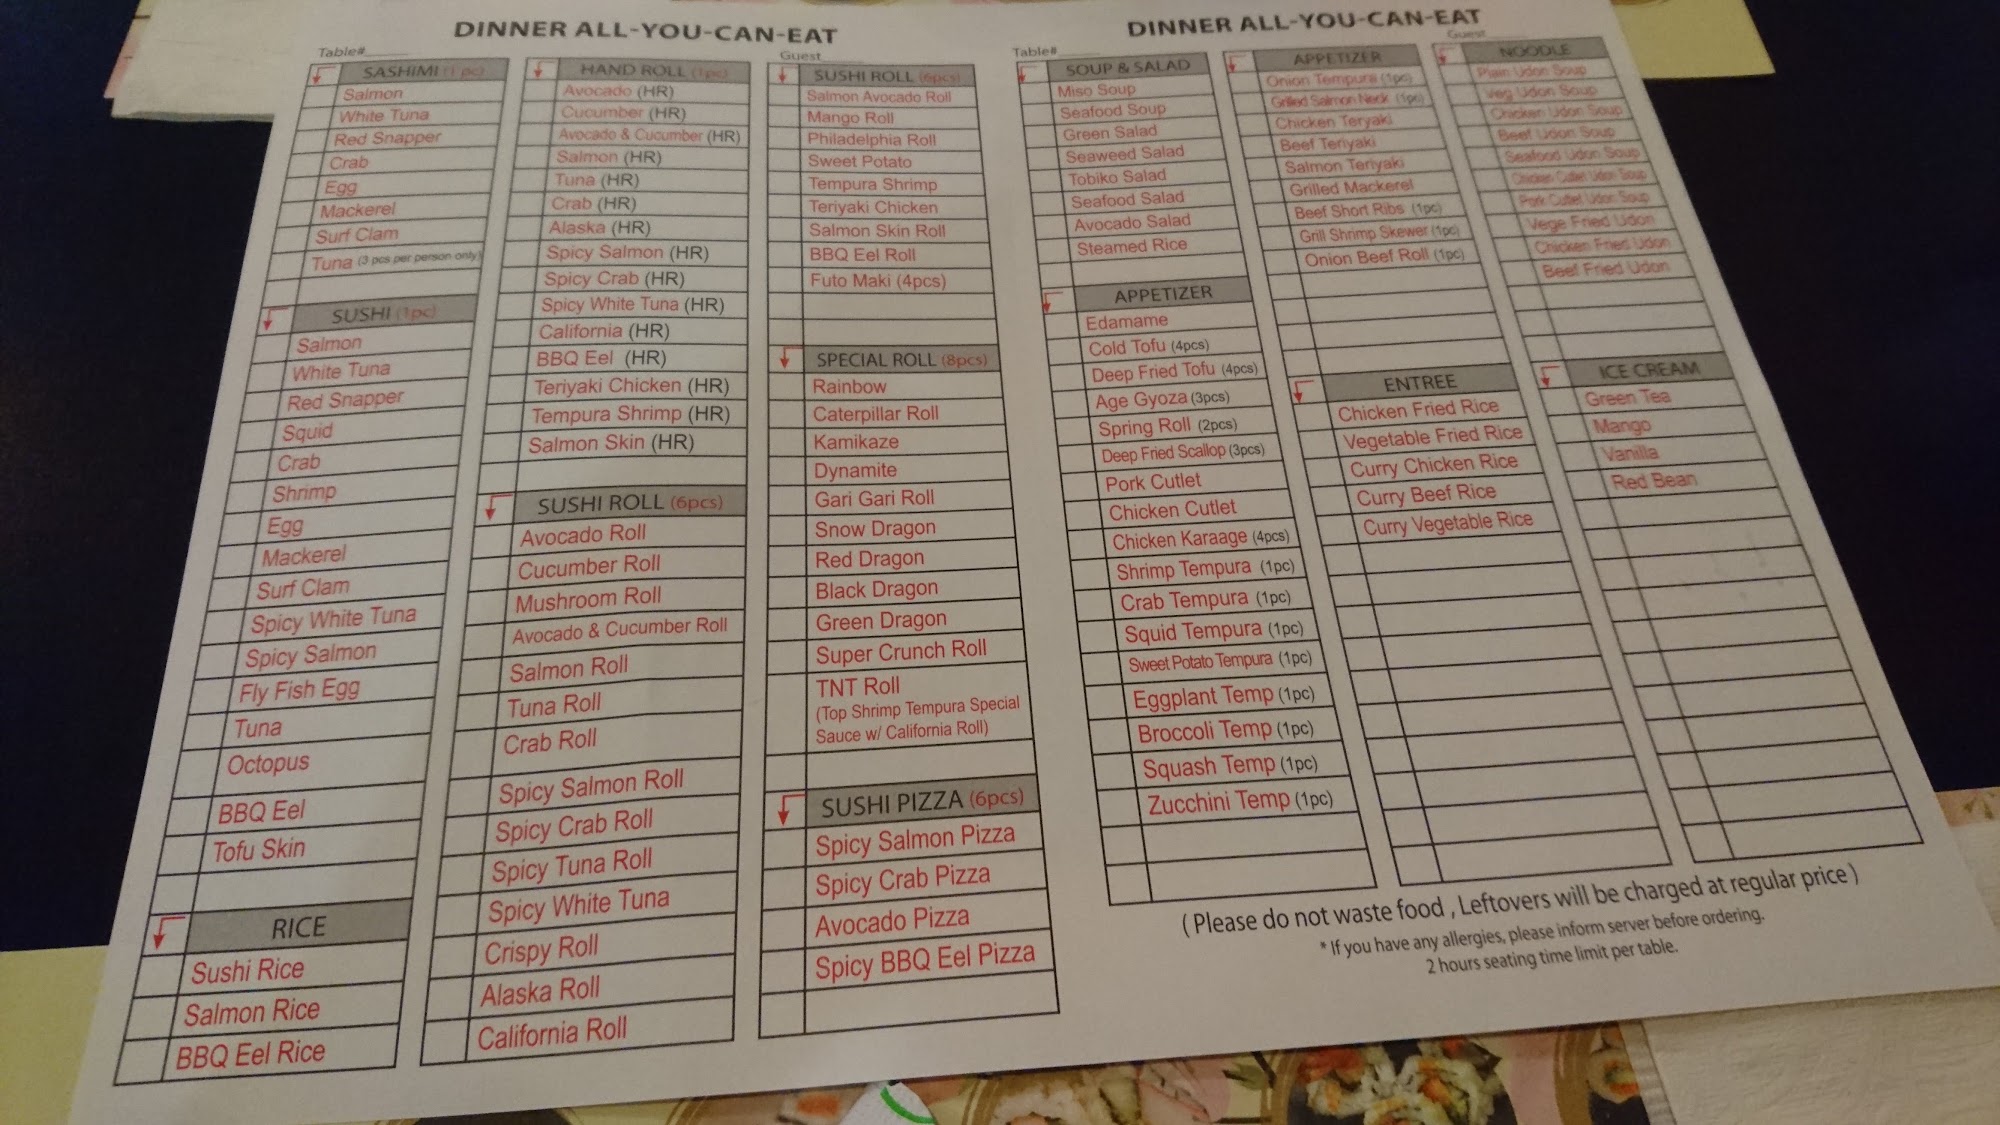 DINNER ALL-YOU-CAN-EAT
Table#
Guest
SASHIMI (1 pc)
Salmon
White Tuna
Red Snapper
Crab
Egg
Mackerel
Surf Clam
Tuna (3 pcs per person only)
SUSHI (1pc)
Salmon
White Tuna
Red Snapper
Squid
Crab
Shrimp
Egg
Mackerel
Surf Clam
Spicy White Tuna
Spicy Salmon
Fly Fish Egg
Tuna
Octopus
BBQ Eel
Tofu Skin
RICE
Sushi Rice
Salmon Rice
BBQ Eel Rice
HAND ROLL (1pc)
Avocado (HR)
Cucumber (HR)
Avocado & Cucumber (HR)
Salmon (HR)
Tuna (HR)
Crab (HR)
Alaska (HR)
Spicy Salmon (HR)
Spicy Crab (HR)
Spicy White Tuna (HR)
California (HR)
BBQ Eel (HR)
Teriyaki Chicken (HR)
Tempura Shrimp (HR)
Salmon Skin (HR)
SUSHI ROLL (6pcs)
Avocado Roll
Cucumber Roll
Mushroom Roll
Avocado & Cucumber Roll
Salmon Roll
Tuna Roll
Crab Roll
Spicy Salmon Roll
Spicy Crab Roll
Spicy Tuna Roll
Spicy White Tuna
Crispy Roll
Alaska Roll
California Roll
SUSHI ROLL (6pcs)
Salmon Avocado Roll
Mango Roll
Philadelphia Roll
Sweet Potato
Tempura Shrimp
Teriyaki Chicken
Salmon Skin Roll
BBQ Eel Roll
Futo Maki (4pcs)
SPECIAL ROLL (8pcs)
Rainbow
Caterpillar Roll
Kamikaze
Dynamite
Gari Gari Roll
Snow Dragon
Red Dragon
Black Dragon
Green Dragon
Super Crunch Roll
TNT Roll
(Top Shrimp Tempura Special
Sauce w/ California Roll)
SUSHI PIZZA (6pcs)
Spicy Salmon Pizza
Spicy Crab Pizza
Avocado Pizza
Spicy BBQ Eel Pizza
DINNER ALL-YOU-CAN-EAT
Table#
Guest
SOUP & SALAD
Miso Soup
Seafood Soup
Green Salad
Seaweed Salad
Tobiko Salad
Seafood Salad
Avocado Salad
Steamed Rice
APPETIZER
Edamame
Cold Tofu (4pcs)
Deep Fried Tofu (4pcs)
Age Gyoza (3pcs)
Spring Roll (2pcs)
Deep Fried Scallop (3pcs)
Pork Cutlet
Chicken Cutlet
Chicken Karaage (4pcs)
Shrimp Tempura (1pc)
Crab Tempura (1pc)
Squid Tempura (1pc)
Sweet Potato Tempura (1pc)
Eggplant Temp (1pc)
Broccoli Temp (1pc)
Squash Temp (1pc)
Zucchini Temp (1pc)
APPETIZER
Onion Tempura (1pc)
Grilled Salmon Neck (1pc)
Chicken Teryaki
Beef Teriyaki
Salmon Teriyaki
Grilled Mackerel
Beef Short Ribs (1pc)
Grill Shrimp Skewer (1pc)
Onion Beef Roll (1pc)
ENTREE
Chicken Fried Rice
Vegetable Fried Rice
Curry Chicken Rice
Curry Beef Rice
Curry Vegetable Rice
NOODLE
Plain Udon Soup
Veg Udon Soup
Chicken Udon Soup
Beef Udon Soup
Seafood Udon Soup
Chicken Cutlet Udon Soup
Pork Cutlet Udon Soup
Vege Fried Udon
Chicken Fried Udon
Beef Fried Udon
ICE CREAM
Green Tea
Mango
Vanilla
Red Bean
( Please do not waste food , Leftovers will be charged at regular price )
* If you have any allergies, please inform server before ordering.
2 hours seating time limit per table.